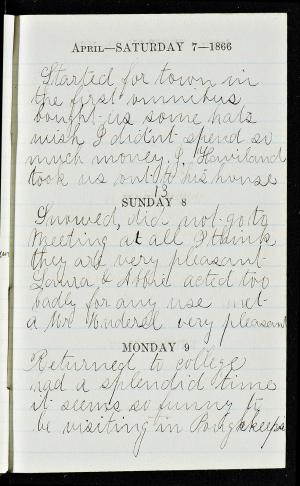 APRIL—SATURDAY 7—1866
Started for town in
the first omnibus
bought us some hats
wish I didnt spend so
much money. J. Haviland
took us out to his house
13
SUNDAY 8
Snowed, did not go to
Meeting at all I think
they are very pleasant
Laura & Abbie acted too
badly for any use met
a Mr very pleasant
MONDAY 9
Returned to college
had a splendid time
it seems so funny to
be visiting in